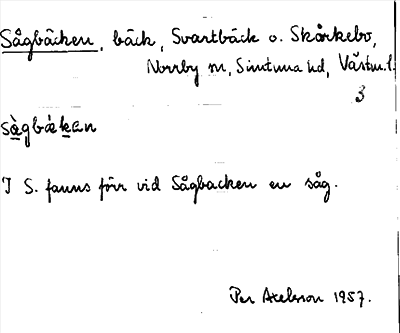 Sågbäcken, bäck, Svartbäck o. Skårkebo,
Norrby sn, Simtuna hd, Västm. l.
3
sàgbäkan
I S. fanns förr vid Sågbacken en såg.
Per Axelsson 1957.